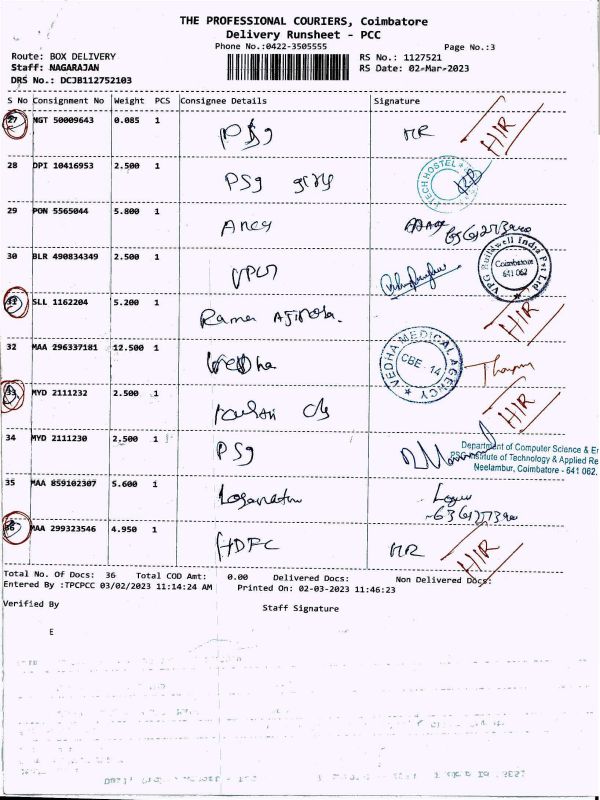 THE PROFESSIONAL COURIERS, Coimbatore
Delivery Runsheet - PCC
Phone No.:0422-3505555
Page No.:3
Route: BOX DELIVERY
RS No.: 1127521
Staff: NAGARAJAN
RS Date: 02-Mar-2023
DRS No.: DCJB112752103
S No Consignment No Weight PCS Consignee Details Signature
27 NGT 50009643 0.085 1 PSg HR HIR
28 DPI 10416953 2.500 1 PSg girls
TECH HOSTEL
29 PON 5565044 5.800 1
30 BLR 490834349 2.500 1
VPG Buildwell India Pvt Ltd
Coimbatore
641 062
31 SLL 1162204 5.200 1 Rama HIR
32 MAA 296337181 12.500 1 Vedha
VEDHA MEDICAL AGENCY
CBE - 14
33 MYD 2111232 2.500 1 HIR
34 MYD 2111230 2.500 1 PSg
Department of Computer Science & En
PSG Institute of Technology & Applied Re
Neelambur, Coimbatore - 641 062.
35 MAA 859102307 5.600 1 Loganathan Logu
36 MAA 299323546 4.950 1 HDFC HR HIR
Total No. Of Docs: 36 Total COD Amt: 0.00 Delivered Docs: Non Delivered Docs:
Entered By :TPCPCC 03/02/2023 11:14:24 AM Printed On: 02-03-2023 11:46:23
Verified By Staff Signature
E